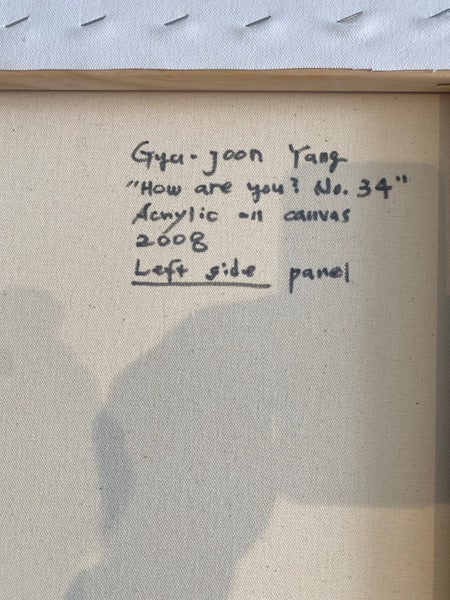 Gyu-joon Yang
"How are you? No. 34"
Acrylic on canvas
2008
Left side panel